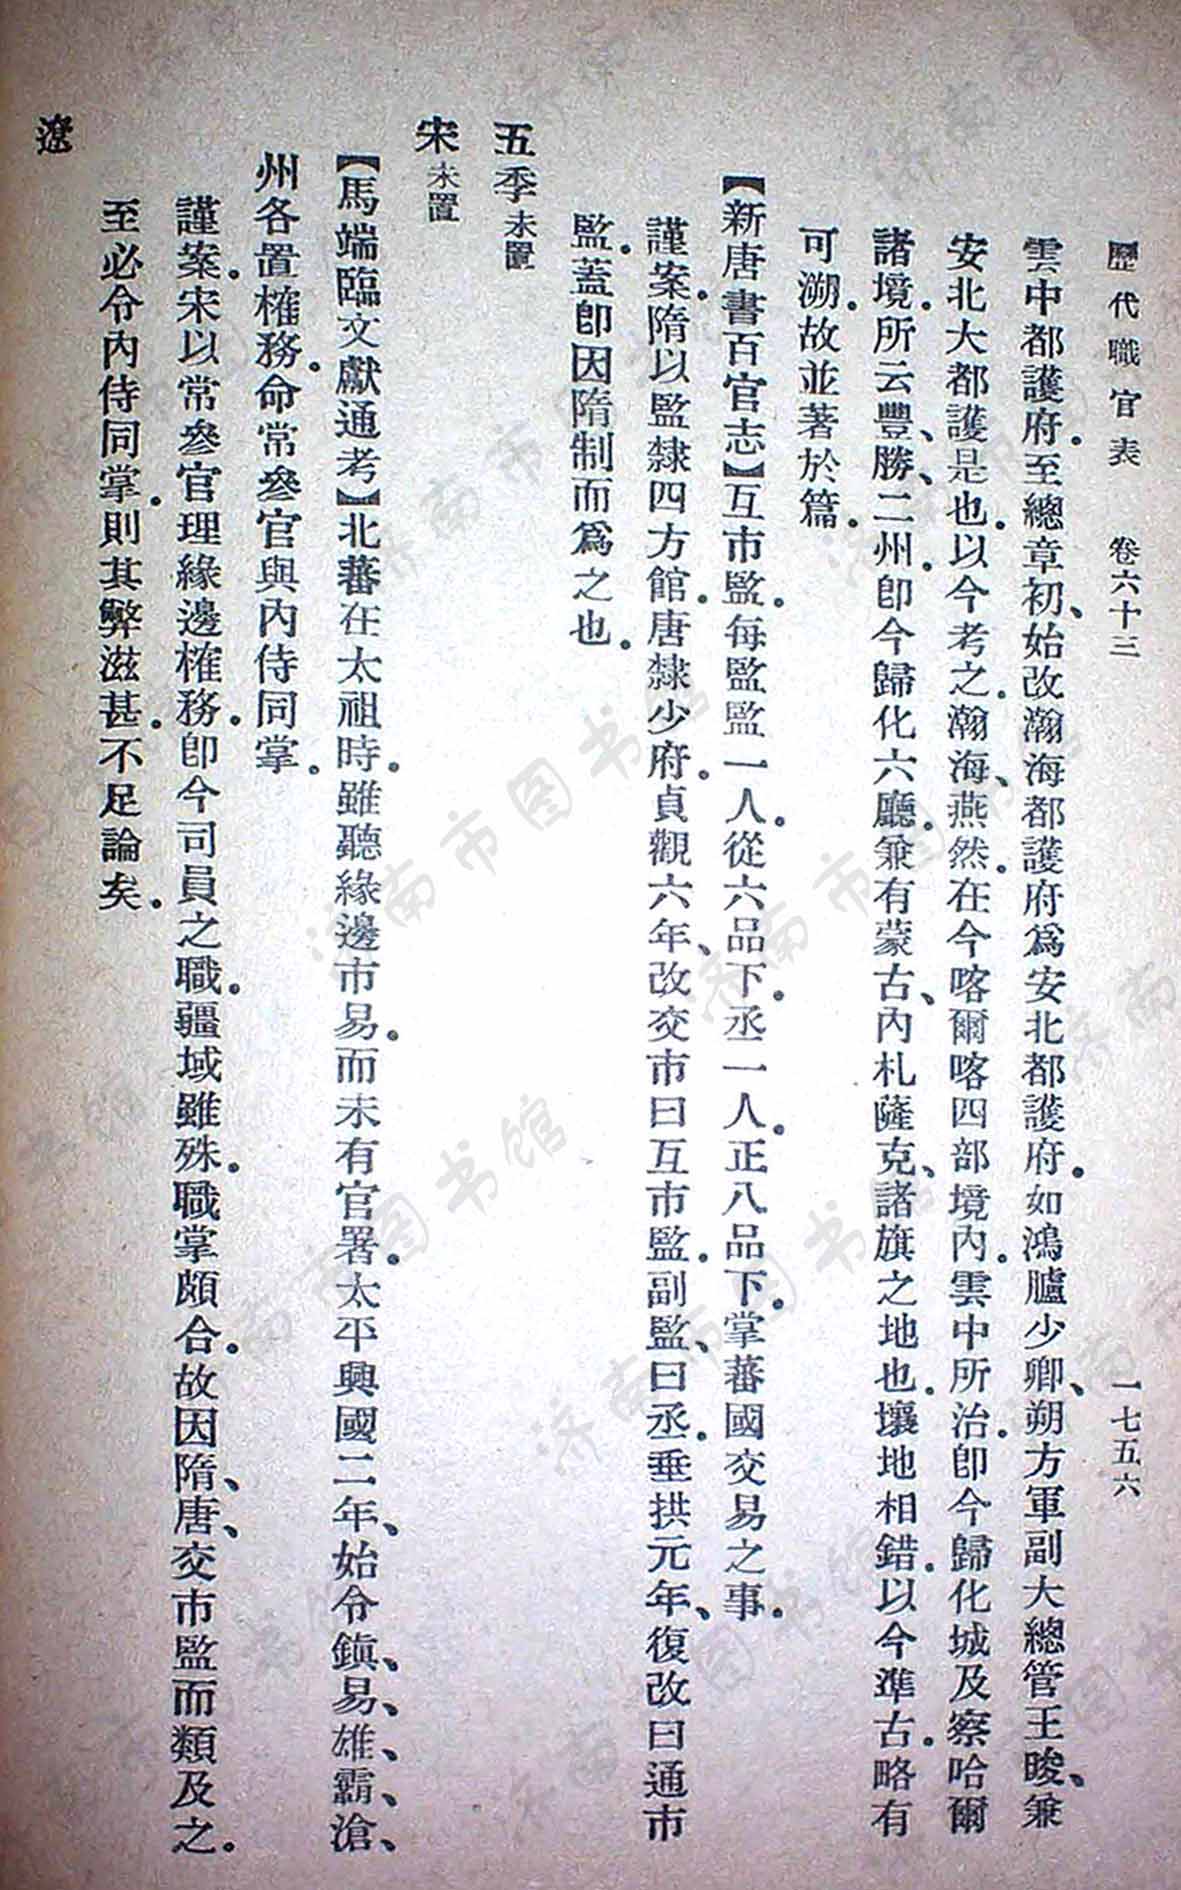 歷代職官表　卷六十三　一七五六
雲中都護府。至總章初、始改瀚海都護府爲安北都護府。如鴻臚少卿、朔方軍副大總管王晙、兼
安北大都護是也。以今考之。瀚海、燕然。在今喀爾喀四部境內。雲中所治。卽今歸化城及察哈爾
諸境。所云豐、勝、二州。卽今歸化六廳。兼有蒙古、內札薩克、諸旗之地也。壤地相錯。以今準古。略有
可溯。故並著於篇。
【新唐書百官志】互市監。每監監一人。從六品下。丞一人。正八品下。掌蕃國交易之事。
謹案。隋以監隸四方館。唐隸少府。貞觀六年、改交市曰互市監。副監、曰丞。垂拱元年、復改曰通市
監。蓋卽因隋制而爲之也。
五季未置
宋未置
【馬端臨文獻通考】北蕃在太祖時。雖聽緣邊市易。而未有官署。太平興國二年、始令鎭、易、雄、霸、滄、
州各置榷務。命常參官與內侍同掌。
謹案。宋以常參官理緣邊榷務。卽今司員之職。疆域雖殊。職掌頗合。故因隋、唐、交市監而類及之。
至必令內侍同掌。則其弊滋甚。不足論矣。
遼